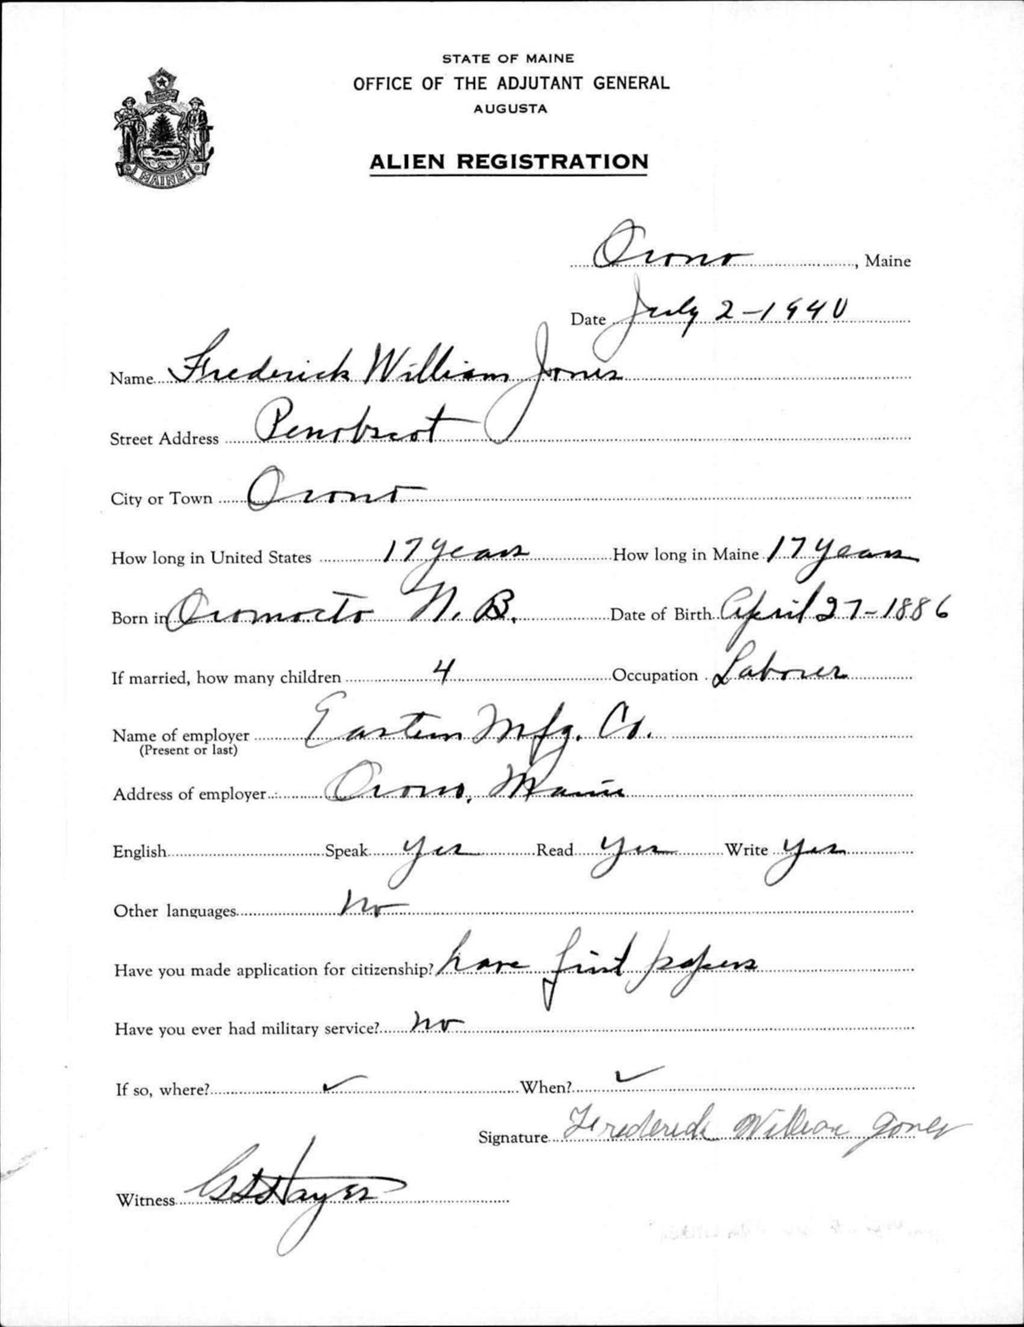 STATE OF MAINE
OFFICE OF THE ADJUTANT GENERAL
AUGUSTA
ALIEN REGISTRATION
MAINE
Orono, Maine
Date July 2-1940
Name Frederick William Jones
Street Address Penobscot
City or Town Orono
How long in United States 17 years How long in Maine 17 years
Born in Oromocto N.B. Date of Birth April 27-1886
If married, how many children 4 Occupation Laborer
Name of employer Eastern Mfg. Co.
(Present or last)
Address of employer Orono, Maine
English Speak yes Read yes Write yes
Other languages no
Have you made application for citizenship? have first papers
Have you ever had military service? no
If so, where? ✓ When? ✓
Signature Frederick William Jones
Witness Hayes